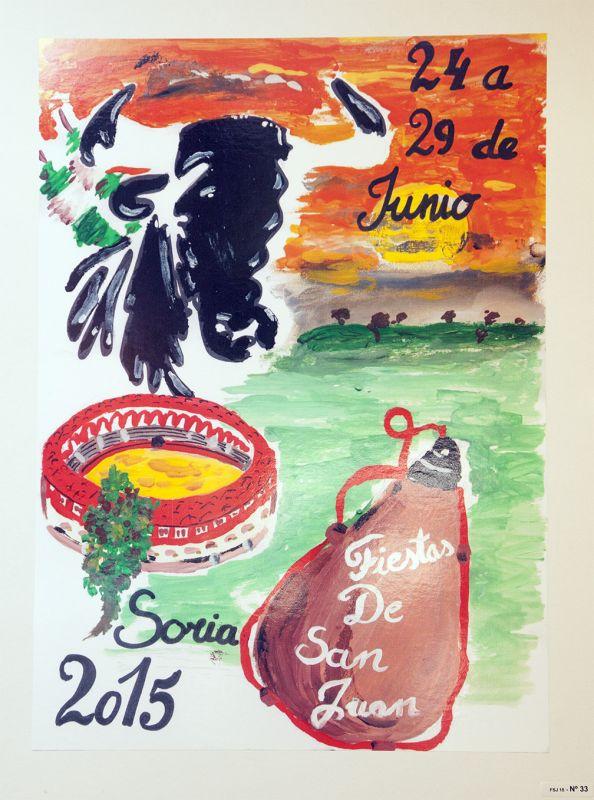 24 a
29 de
Junio
Fiestas
De
San
Juan
Soria
2015
FSJ 15 - Nº 33